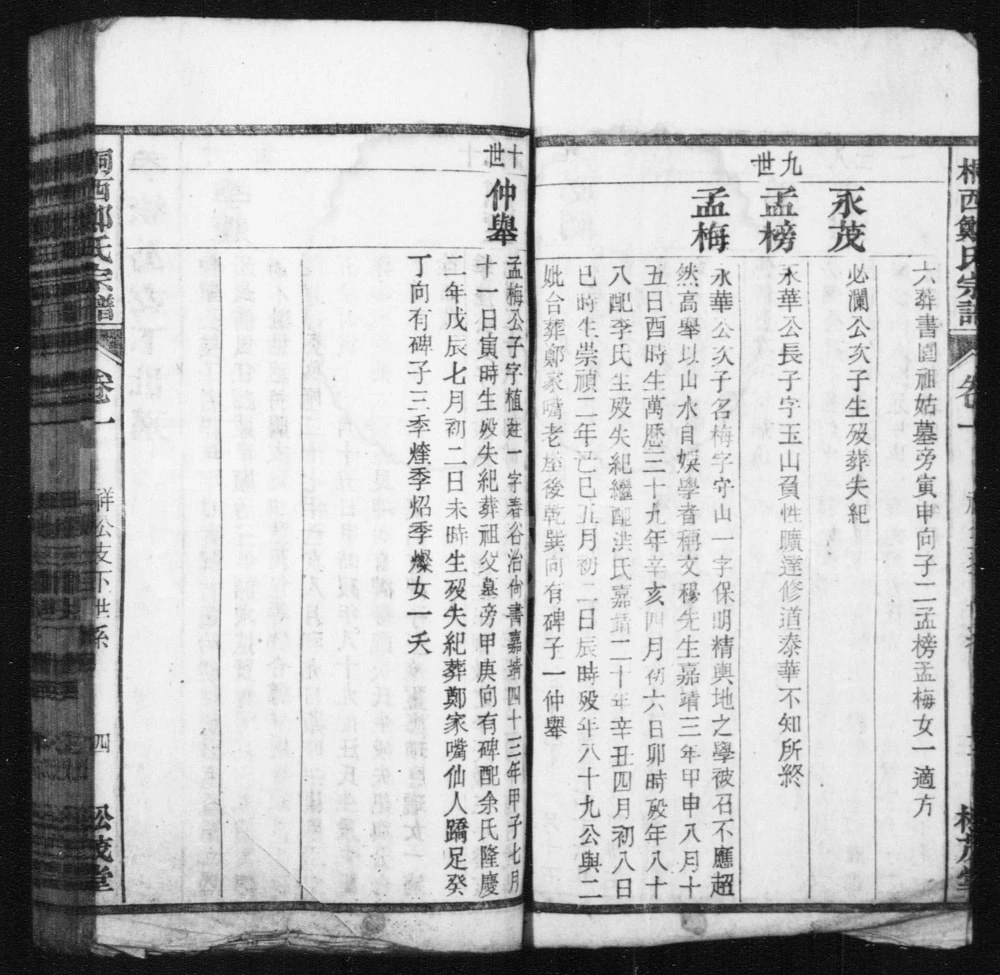 桐西鄭氏宗譜
卷一
松茂堂
六葬書園祖姑墓旁寅申向子二孟榜孟梅女一適方
九世
永茂
必瀾公次子生歿葬失紀
孟榜
永華公長子字玉山負性曠達修道泰華不知所終
孟梅
永華公次子名梅字守山一字保明精輿地之學被召不應超
然高舉以山水自娛學者稱文穆先生嘉靖三年甲申八月十
五日酉時生萬曆三十九年辛亥四月初六日卯時歿年八十
八配李氏生歿失紀繼配洪氏嘉靖二十年辛丑四月初八日
巳時生崇禎二年己巳五月初二日辰時歿年八十九公與二
妣台葬鄭家嘴老屋後乾巽向有碑子一仲舉
十世
仲舉
孟梅公子字植庭一字春谷治尚書嘉靖四十三年甲子七月
十一日寅時生歿失紀葬祖父墓旁甲庚向有碑配余氏隆慶
二年戊辰七月初二日未時生歿失紀葬鄭家嘴仙人蹻足癸
丁向有碑子三季煃季炤季燦女一夭
桐西鄭氏宗譜
卷一
祥公支下世系
四
松茂堂